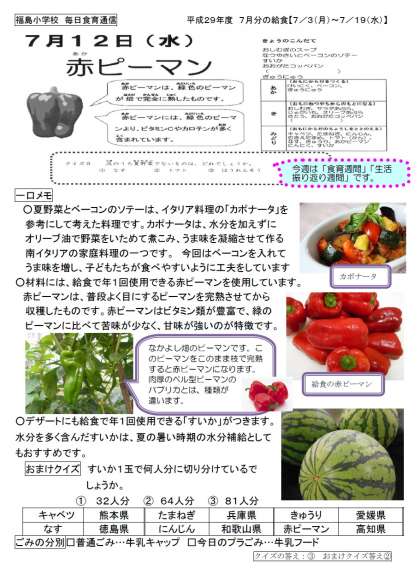 福島小学校 毎日食育通信
平成29年度 7月分の給食【7/3(月)~7/19(水)】
7月12日(水)
あか
赤ピーマン
赤ピーマンは、緑色のピーマン
が畑で完全に熟したものです。
赤ピーマンには、緑のピーマ
ンより、ビタミンCやカロテンが多く
含まれています。
きょうのこんだて
おしむぎのスープ
なつやさいとベーコンのソテー
すいか
おおがたコッペパン
ぎゅうにゅう
あか
き
みどり
今週は「食育週間」「生活
振り返り週間」です。
一口メモ
○夏野菜とベーコンのソテーは、イタリア料理の「カポナータ」を
参考にして考えた料理です。カポナータは、水分を加えずに
オリーブ油で野菜をいためて煮こみ、うま味を凝縮させて作る
南イタリアの家庭料理の一つです。 今回はベーコンを入れて
うま味を増し、子どもたちが食べやすいように工夫をしています
カポナータ
○材料には、給食で年1回使用できる赤ピーマンを使用しています。
赤ピーマンは、普段よく目にするピーマンを完熟させてから
収穫したものです。赤ピーマンはビタミン類が豊富で、緑の
ピーマンに比べて苦味が少なく、甘味が強いのが特徴です。
なかよし畑のピーマンです。こ
のピーマンをこのまま枝で完熟
すると赤ピーマンになります。
肉厚のベル型ピーマンの
パプリカとは、種類が
違います。
給食の赤ピーマン
○デザートにも給食で年1回使用できる「すいか」がつきます。
水分を多く含んだすいかは、夏の暑い時期の水分補給として
もおすすめです。
おまけクイズ すいか1玉で何人分に切り分けているで
しょうか。
① 32人分 ② 64人分 ③ 81人分
キャベツ 熊本県 たまねぎ 兵庫県 きゅうり 愛媛県
なす 徳島県 にんじん 和歌山県 赤ピーマン 高知県
ごみの分別 □普通ごみ…牛乳キャップ □今日のプラごみ…牛乳フード
クイズの答え:③ おまけクイズ答え②